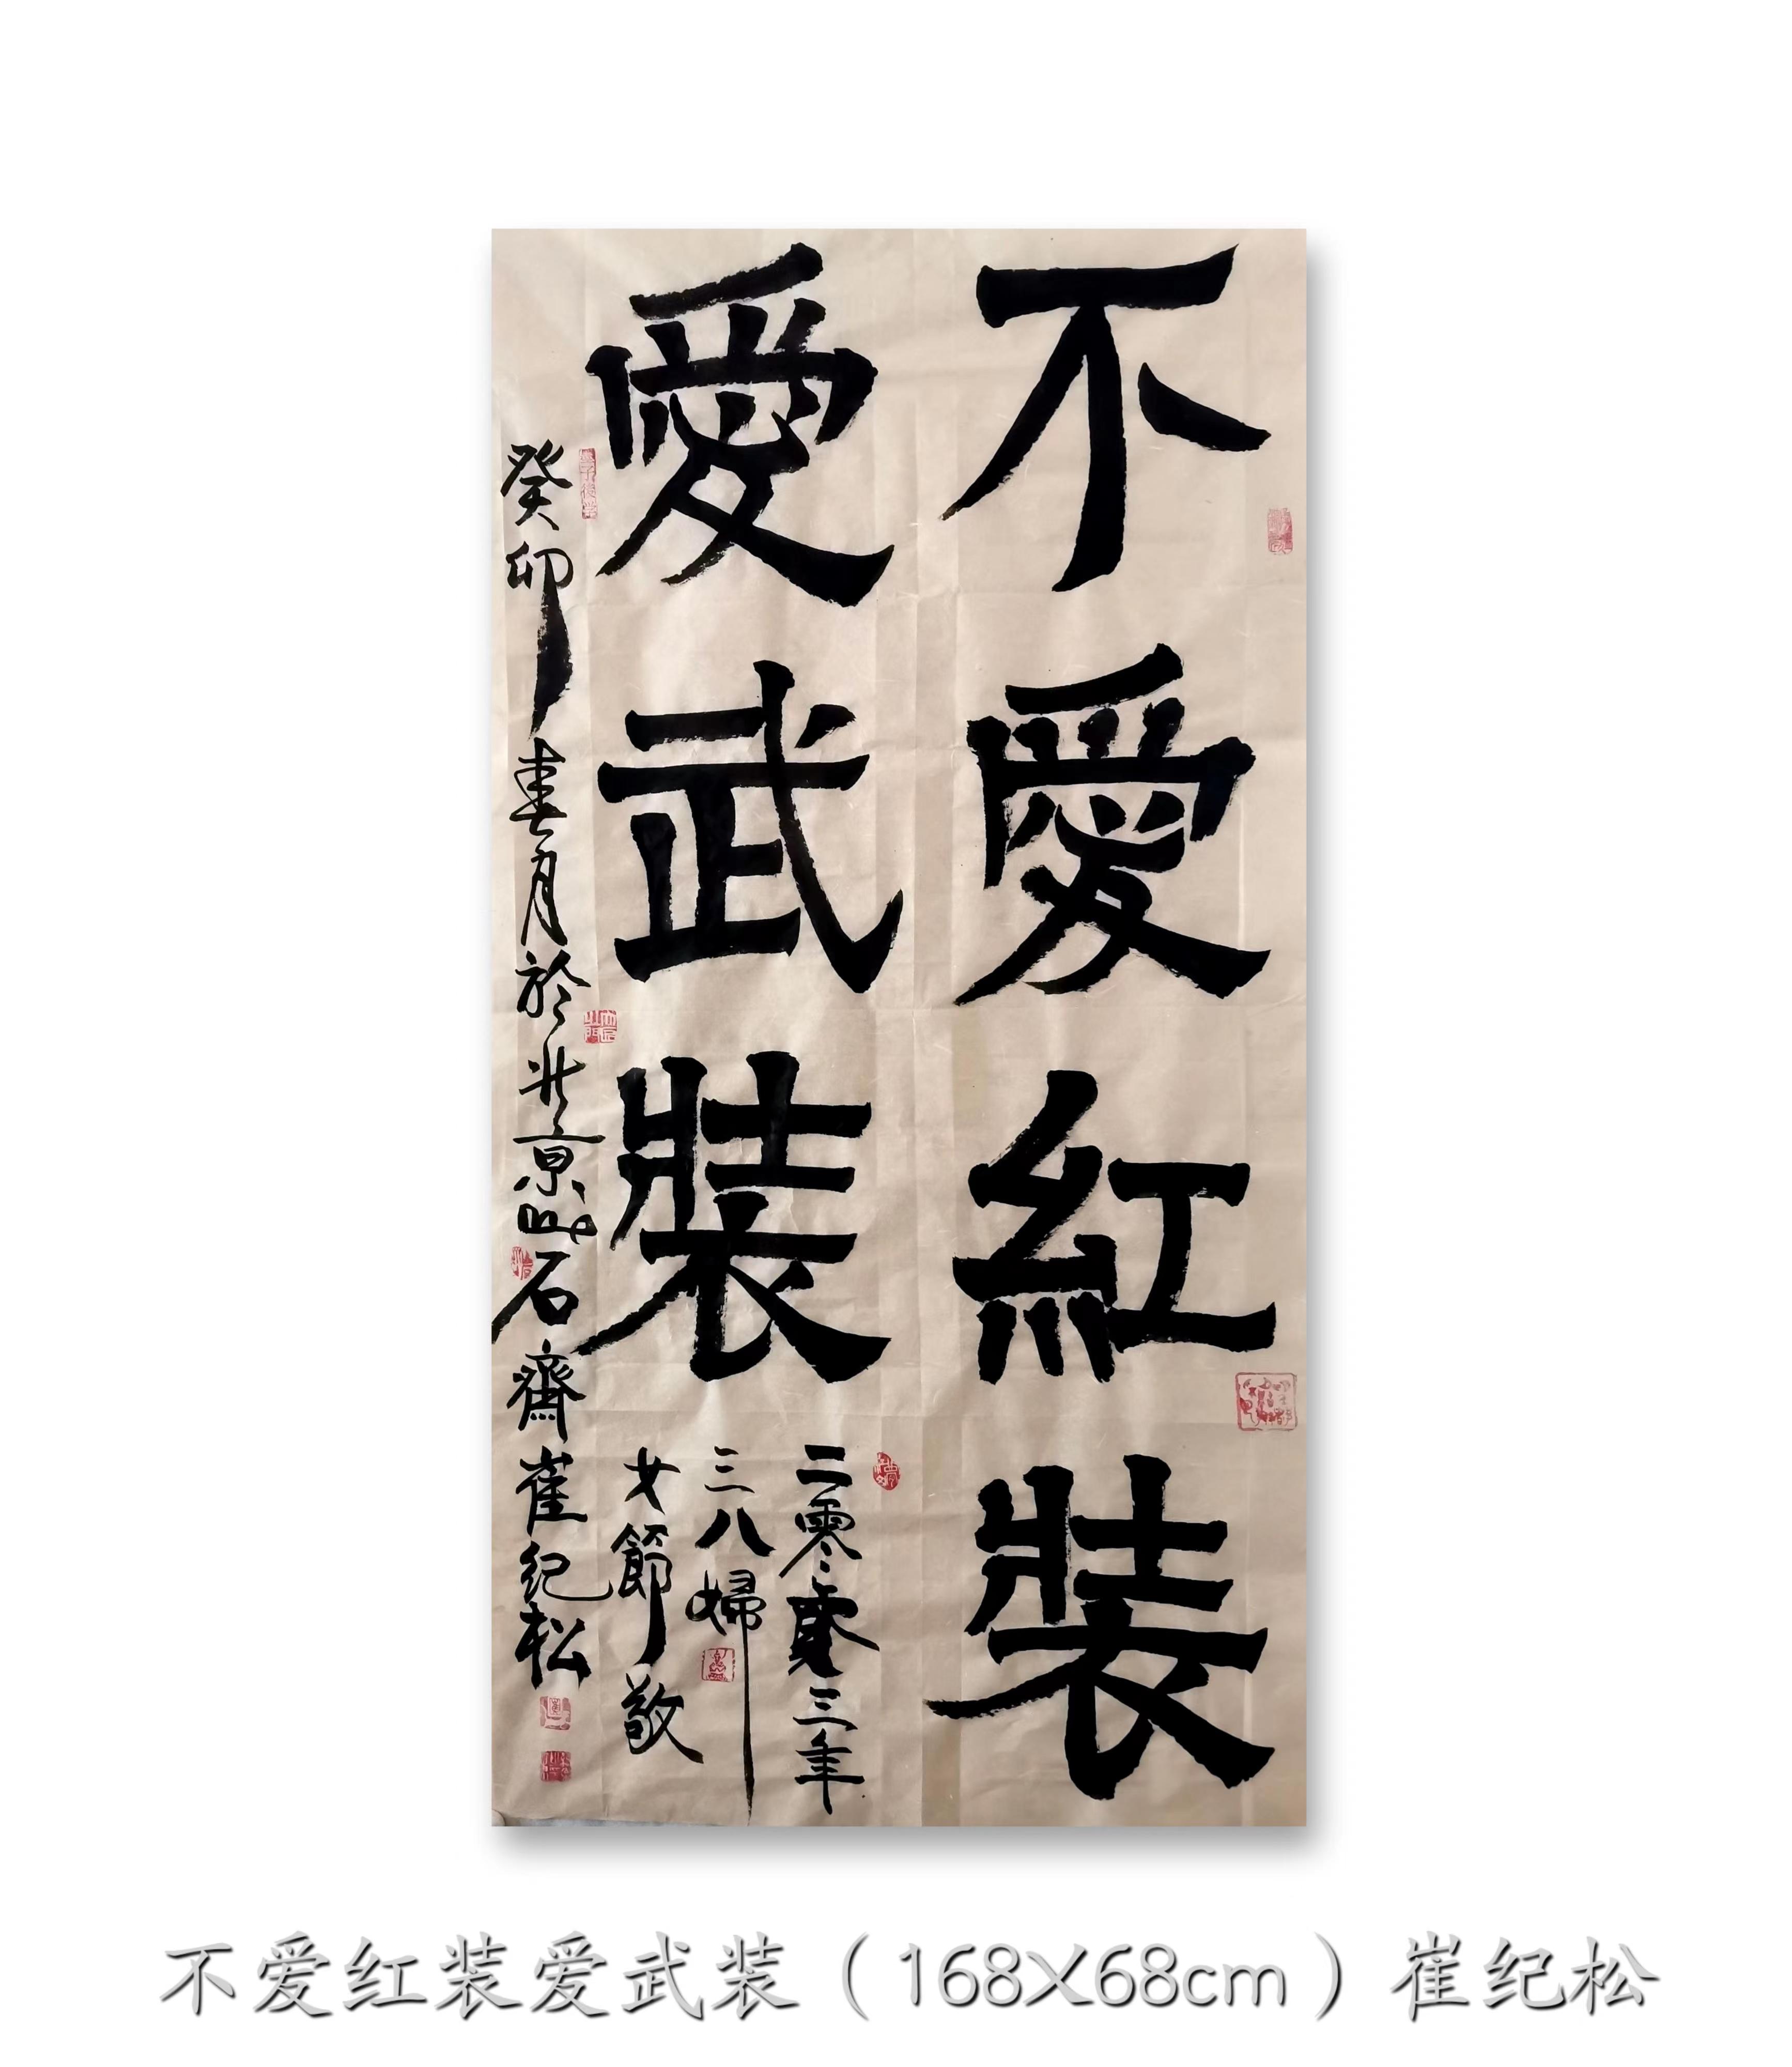 不愛紅裝
愛武裝
二零零三年
三八婦
女節敬
癸卯春月於北京
石齋崔纪松
不爱红装爱武装（168X68cm）崔纪松